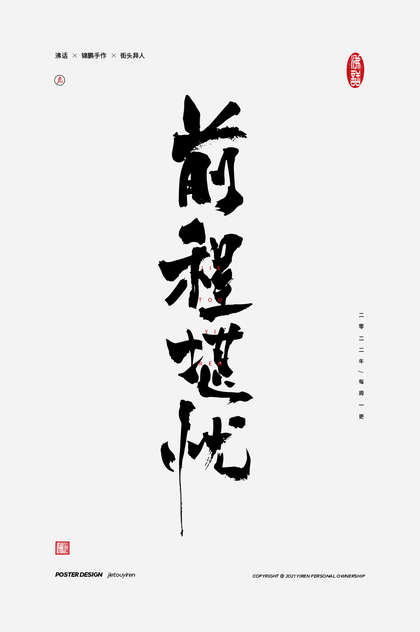 沸话 × 锦鹏手作 × 街头异人
佛話
前
程
堪
忧
JIE
TOU
YI
REN
二零二二年／每周一更
POSTER DESIGN jietouyiren
COPYRIGHT @ 2021 YIREN PERSONAL OWNERSHIP